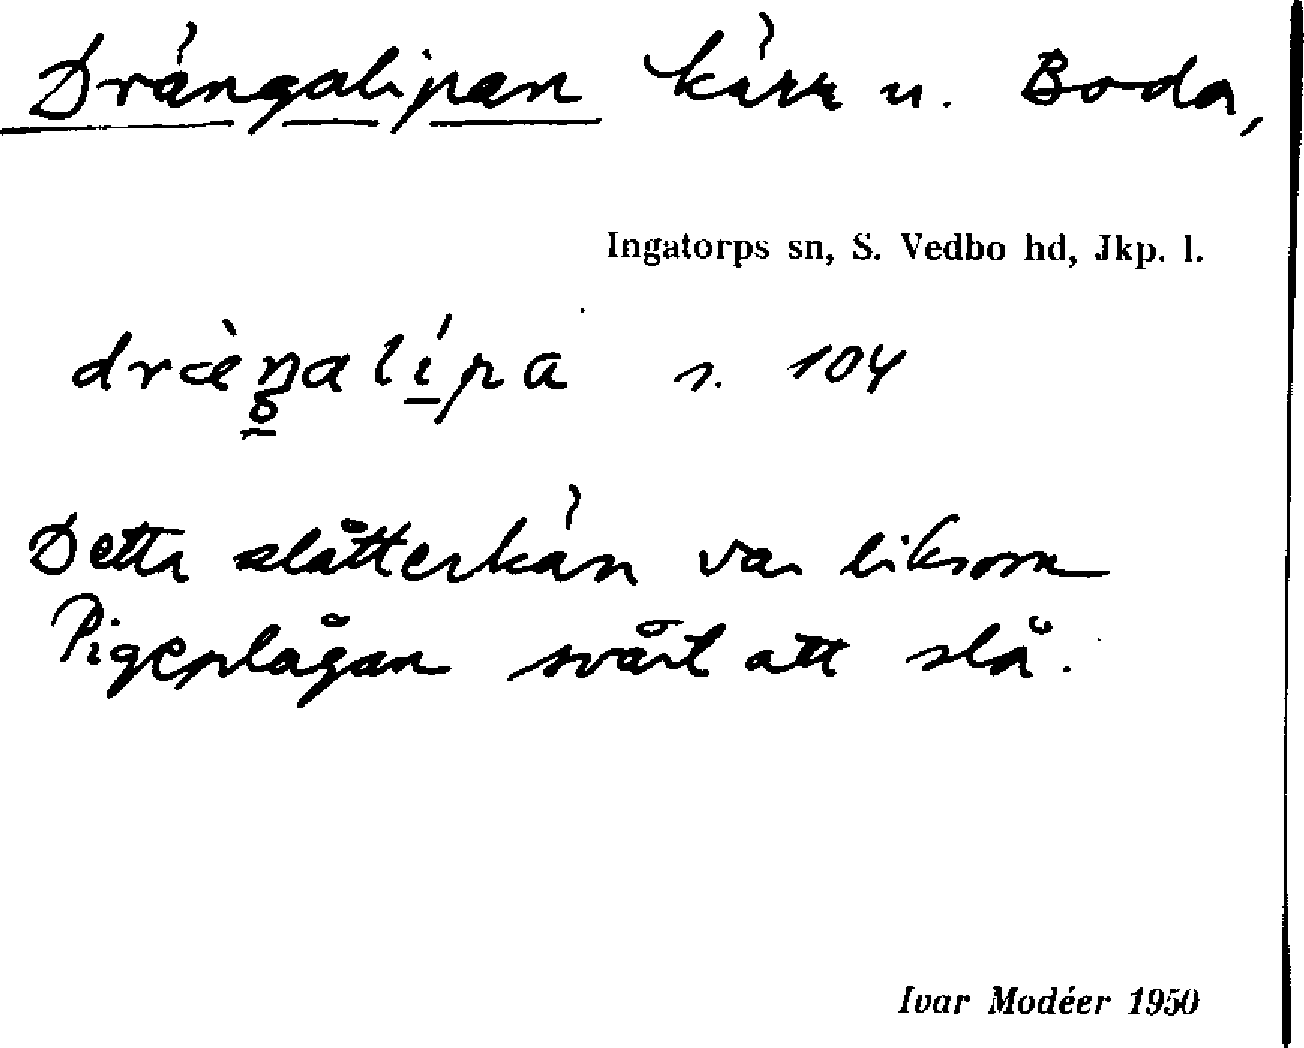 Drängalipan kärr u. Boda,
Ingatorps sn, S. Vedbo hd, Jkp. l.
dræ̀ŋalípa s. 104
Detta slåtterkärr var liksom
Pigeplågan svårt att slå.
Ivar Modéer 1950